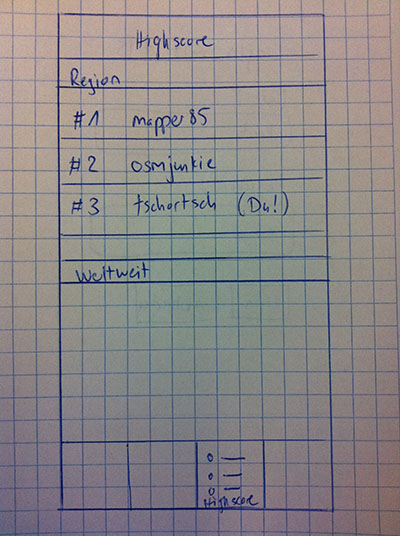 Highscore
Region
#1 mapper85
#2 osmjunkie
#3 tschortsch (Du!)
Weltweit
Highscore